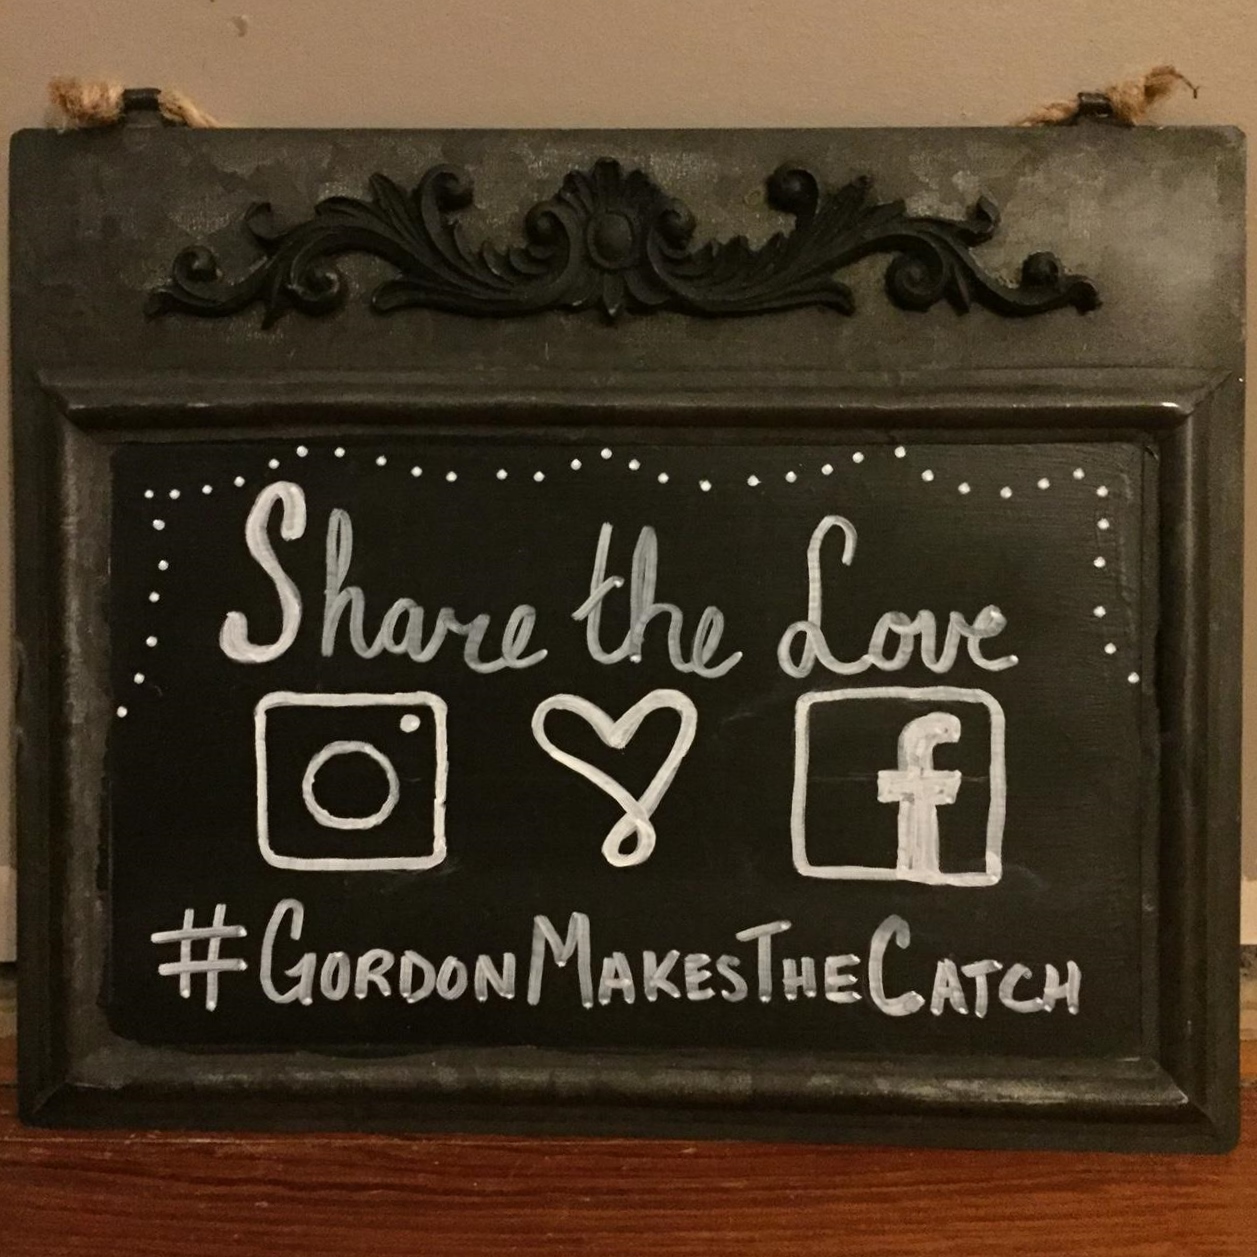 Share the Love
f
#GORDONMAKESTHECATCH